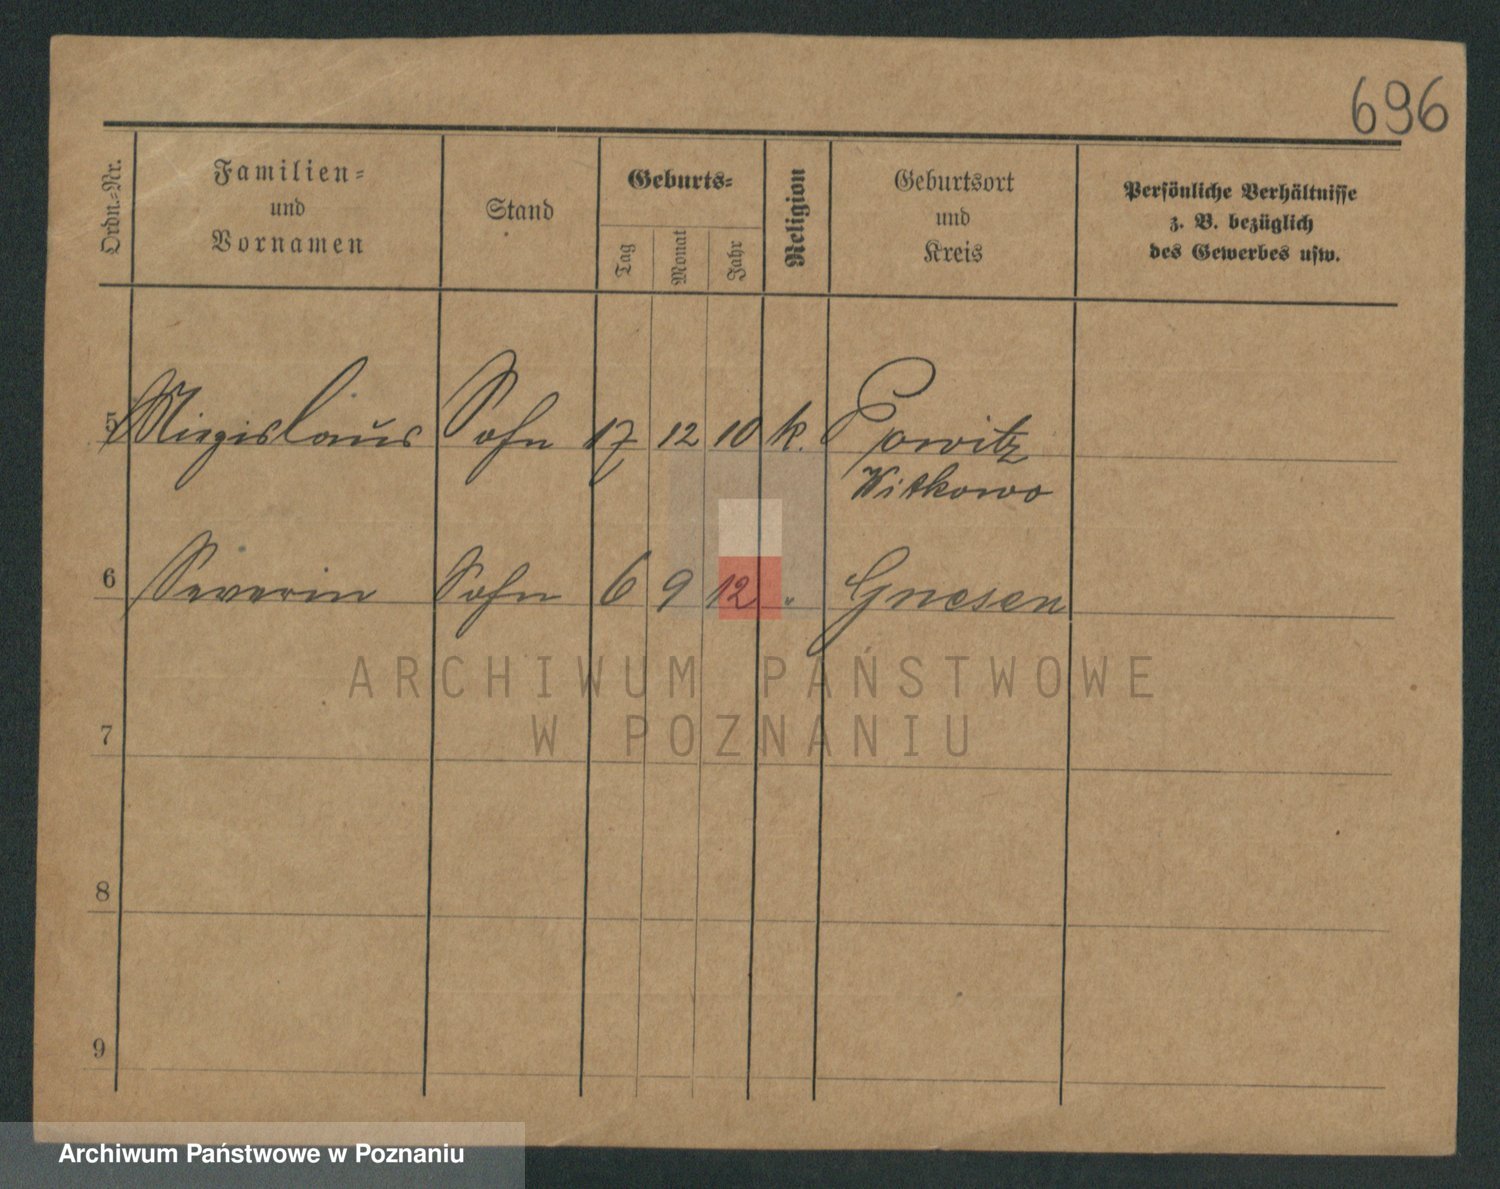 696
Ordn.=Nr.
Familien=
und
Vornamen
Stand
Geburts=
Tag
Monat
Jahr
Religion
Geburtsort
und
Kreis
Persönliche Verhältnisse
z. B. bezüglich
des Gewerbes usw.
5 Miezislaus Sohn 17 12 10 k. Powitz
Witkowo
6 Severin Sohn 6 9 12 " Gnesen
ARCHIWUM PAŃSTWOWE
W POZNANIU
7
8
9
Archiwum Państwowe w Poznaniu